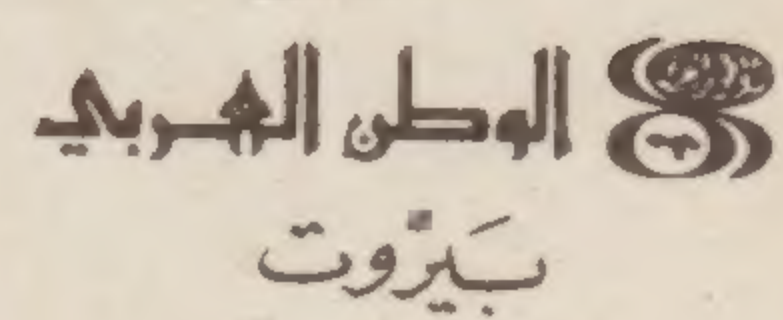 الوطن العربي
بَيرْوت